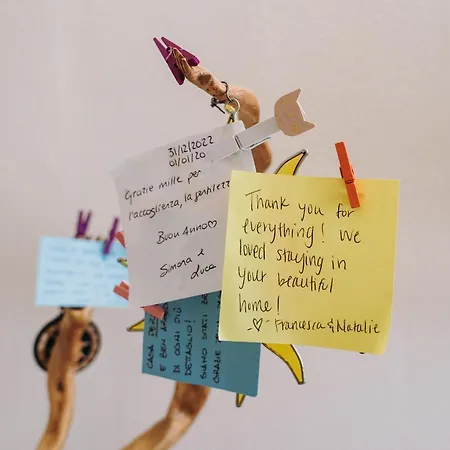 31/12/2022
01/01/20
Grazie mille per
l'accoglienza, la gentilezz
Buon Anno♡
Simona e
Luca
Thank you for
everything! We
loved staying in
your beautiful
home!
-♡- Francesca & Natalie
CASA
E BEN
DI OGNI PIÙ
DETTAGLIO!
SIAMO STATI
GRAZIE